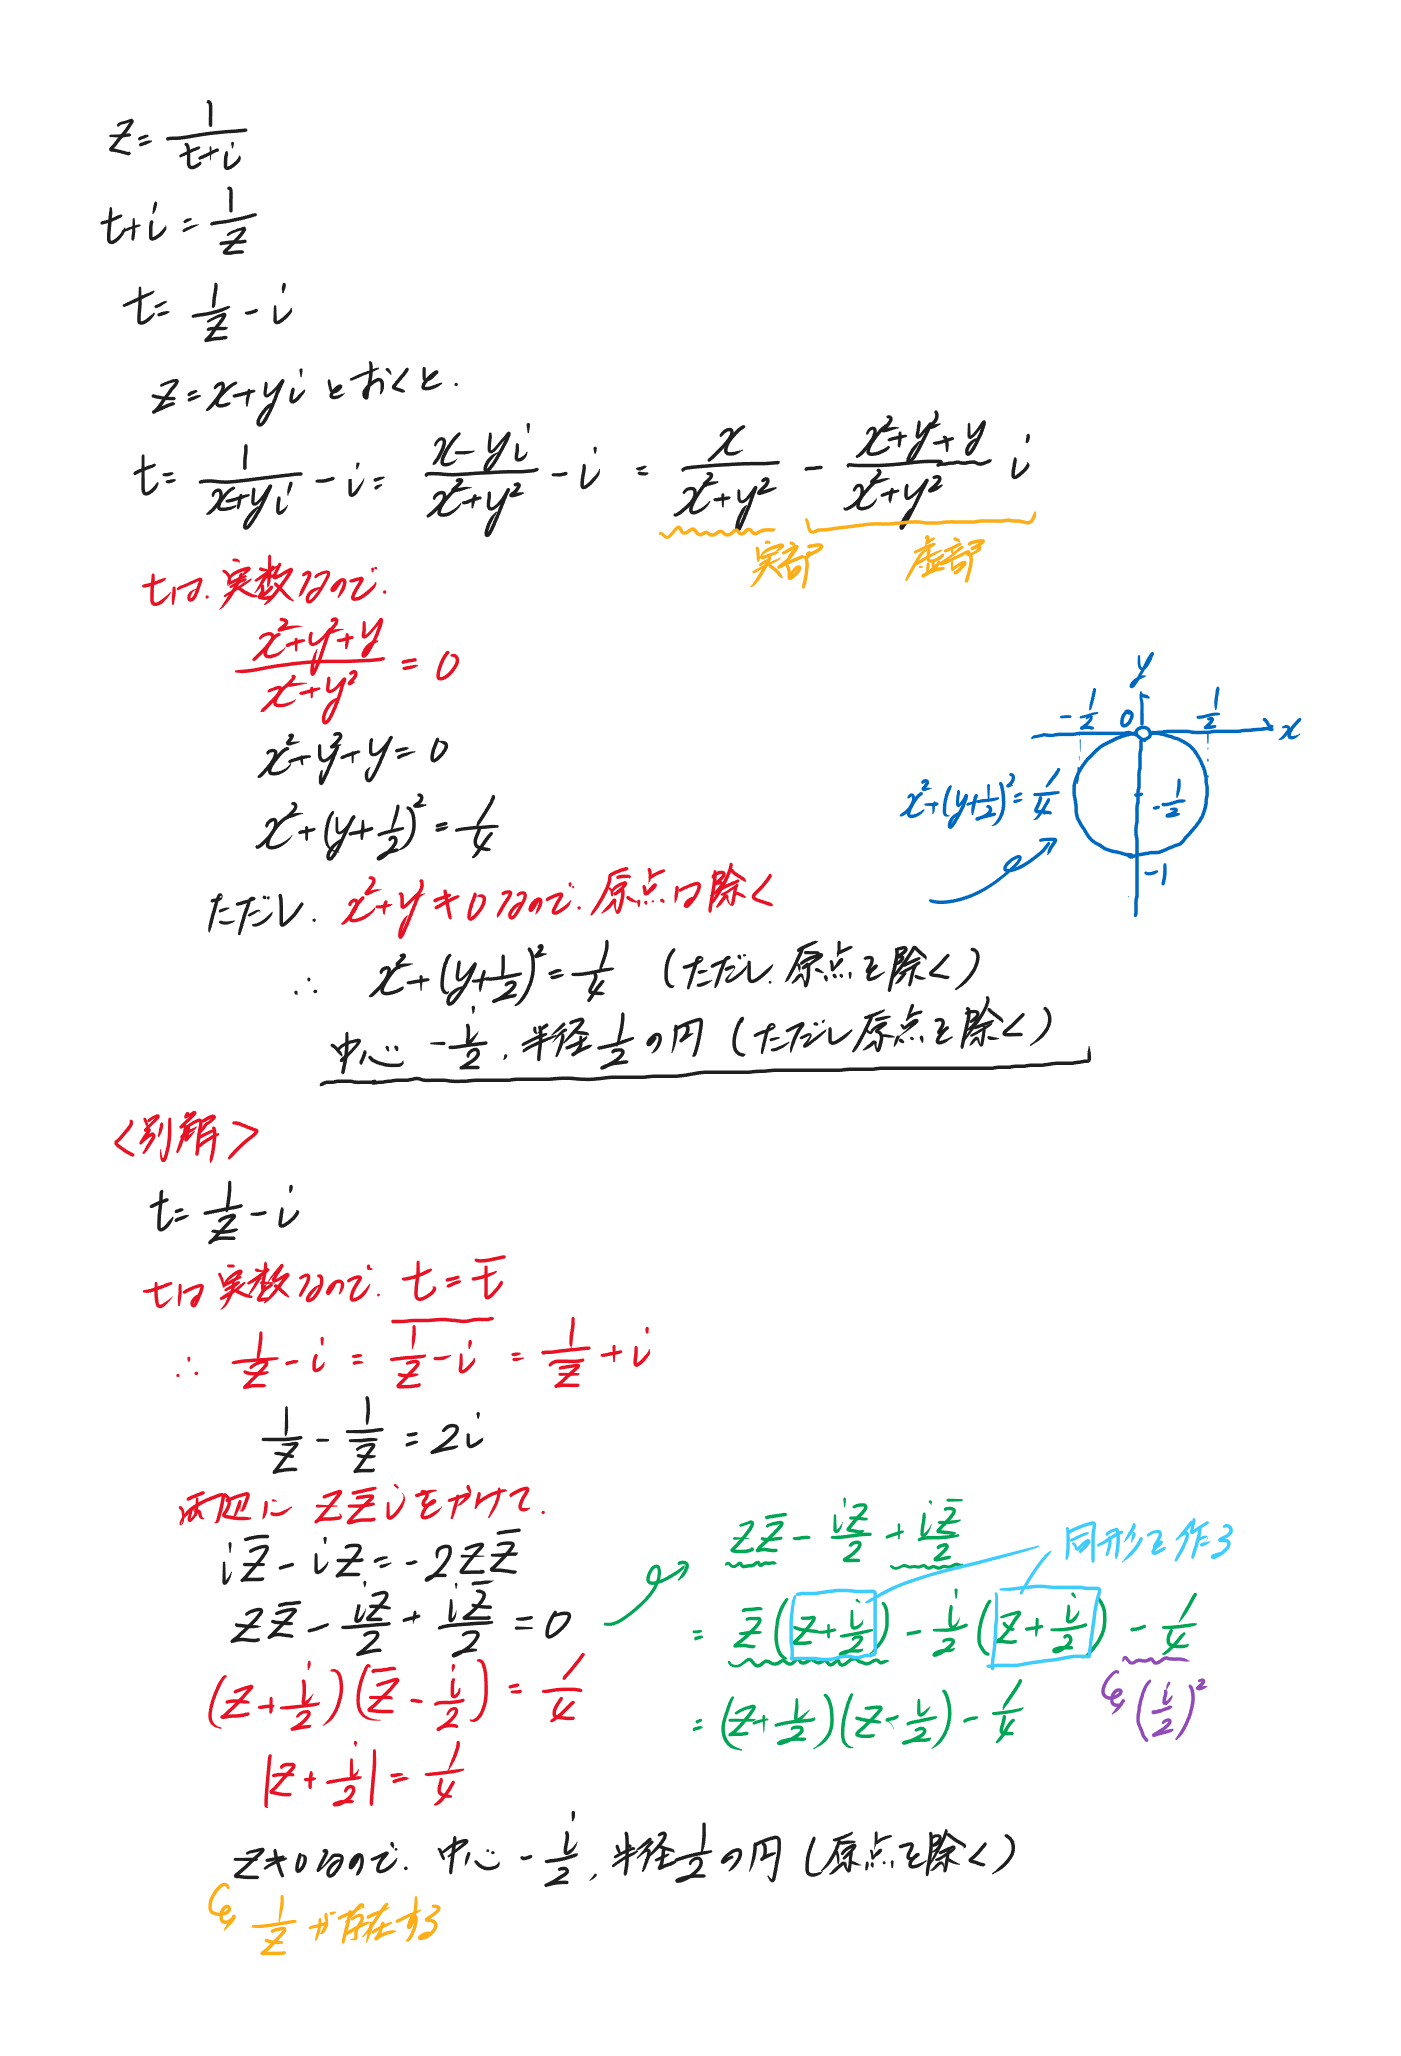 z = 1/(t+i)
t+i = 1/z
t = 1/z - i
z = x+yi とおくと.
t = 1/(x+yi) - i = (x-yi)/(x²+y²) - i = x/(x²+y²) - (x²+y²+y)/(x²+y²) i
実部 虚部
tは. 実数なので.
(x²+y²+y)/(x²+y²) = 0
x²+y²+y = 0
x²+(y+1/2)² = 1/4
ただし. x²+y²≠0なので. 原点は除く
y
-1/2 0 1/2 x
x²+(y+1/2)² = 1/4 -1/2
-1
∴ x²+(y+1/2)² = 1/4 (ただし. 原点を除く)
中心 -i/2, 半径1/2の円 (ただし原点を除く)
<別解>
t = 1/z - i
tは実数なので. t = t̅
∴ 1/z - i = \overline{1/z - i} = 1/z̅ + i
1/z - 1/z̅ = 2i
両辺に zz̅i をかけて.
iz̅ - iz = -2zz̅
zz̅ - iz/2 + iz̅/2 = 0
(z+i/2)(z̅-i/2) = 1/4
|z+i/2| = 1/4
z≠0なので. 中心 -i/2, 半径1/2の円 (原点を除く)
1/z が存在する
zz̅ - iz/2 + iz̅/2
同形を作る
= z̅(z+i/2) - i/2(z+i/2) - 1/4
(i/2)²
= (z+i/2)(z-i/2) - 1/4